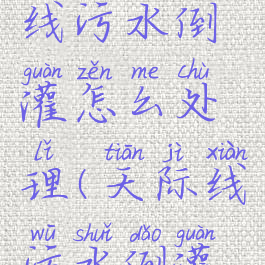 线污水倒
guàn zěn me chù
灌怎么处
lǐ tiān jì xiàn
理(天际线
wū shuǐ dǎo guàn
污水倒灌